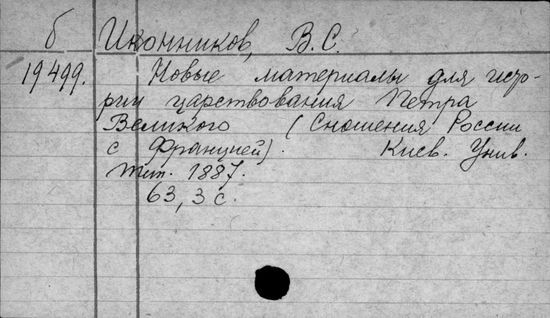 б Иконников, В.С.
19499. Новые материалы для исто-
рии царствования Петра
Великого (Сношения России
с Францией). Киев. Унив.
тип. 1887.
63, 3 с.